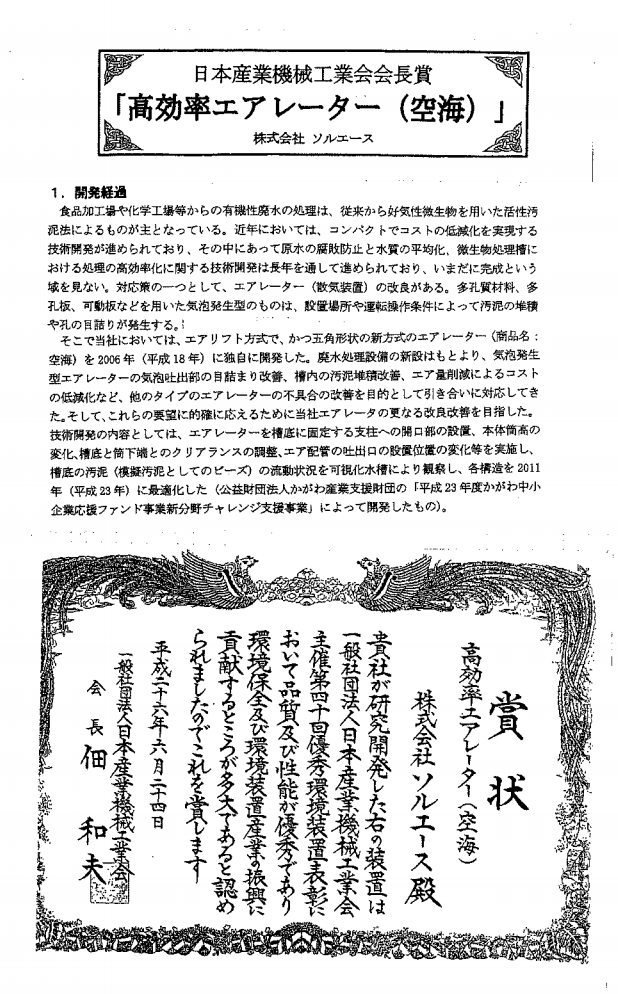 日本産業機械工業会会長賞
「高効率エアレーター（空海）」
株式会社 ソルエース
1．開発経過
食品加工場や化学工場等からの有機性廃水の処理は、従来から好気性微生物を用いた活性汚
泥法によるものが主となっている。近年においては、コンパクトでコストの低減化を実現する
技術開発が進められており、その中にあって原水の腐敗防止と水質の平均化、微生物処理槽に
おける処理の高効率化に関する技術開発は長年を通して進められており、いまだに完成という
域を見ない。対応策の一つとして、エアレーター（散気装置）の改良がある。多孔質材料、多
孔板、可動板などを用いた気泡発生型のものは、設置場所や運転操作条件によって汚泥の堆積
や孔の目詰りが発生する。
そこで当社においては、エアリフト方式で、かつ五角形状の新方式のエアレーター（商品名：
空海）を2006年（平成18年）に独自に開発した。廃水処理設備の新設はもとより、気泡発生
型エアレーターの気泡吐出部の目詰まり改善、槽内の汚泥堆積改善、エア量削減によるコスト
の低減化など、他のタイプのエアレーターの不具合の改善を目的として引き合いに対応してき
た。そして、これらの要望に的確に応えるために当社エアレータの更なる改良改善を目指した。
技術開発の内容としては、エアレーターを槽底に固定する支柱への開口部の設置、本体筒高の
変化、槽底と筒下端とのクリアランスの調整、エア配管の吐出口の設置位置の変化等を実施し、
槽底の汚泥（模擬汚泥としてのビーズ）の流動状況を可視化水槽により観察し、各構造を2011
年（平成23年）に最適化した（公益財団法人かがわ産業支援財団の「平成23年度かがわ中小
企業応援ファンド事業新分野チャレンジ支援事業」によって開発したもの）。
賞状
高効率エアレーター（空海）
株式会社ソルエース殿
貴社が研究開発した右の装置は
一般社団法人日本産業機械工業会
主催第四十回優秀環境装置表彰に
おいて品質及び性能が優秀であり
環境保全及び環境装置産業の振興に
貢献するところが多大であると認め
られましたのでこれを賞します
平成二十六年六月二十四日
一般社団法人日本産業機械工業会
会長 佃 和夫